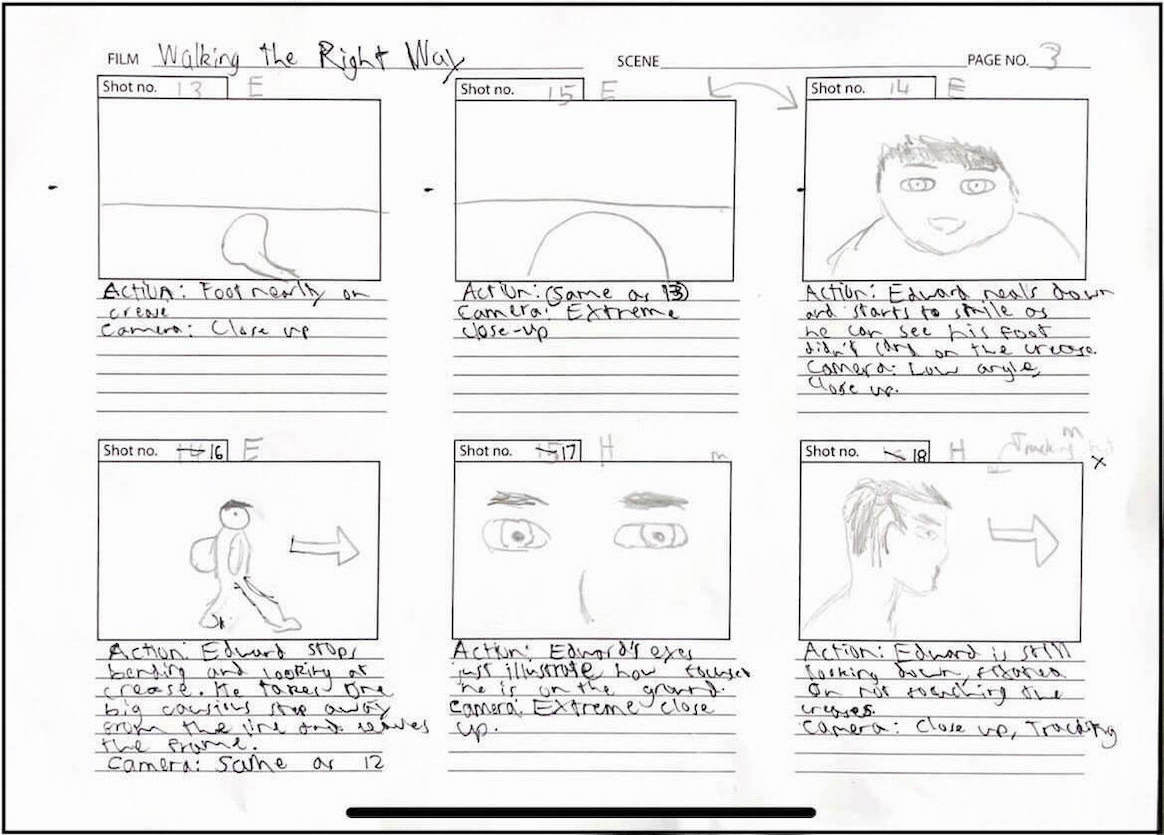 FILM Walking the Right Way SCENE PAGE NO. 3
Shot no. 13 E
Action: Foot nearly on
crease
Camera: Close up
Shot no. 15 E
Action: (Same as 13)
Camera: Extreme
close-up
Shot no. 14 E
Action: Edward neals down
and starts to smile as
he can see his foot
didn't land on the crease.
Camera: Low angle,
Close up.
Shot no. 14 16 E
Action: Edward stops
bending and looking at
crease. He takes one
big cautius step away
from the line and leaves
the frame.
Camera: Same as 12
Shot no. 15 17 H
m
Action: Edward's eyes
just illustrate how focused
he is on the ground.
Camera: Extreme close
up.
Shot no. 18 H
Tracking m
x
Action: Edward is still
looking down, fixated
on not touching the
creases.
Camera: Close up, Tracking